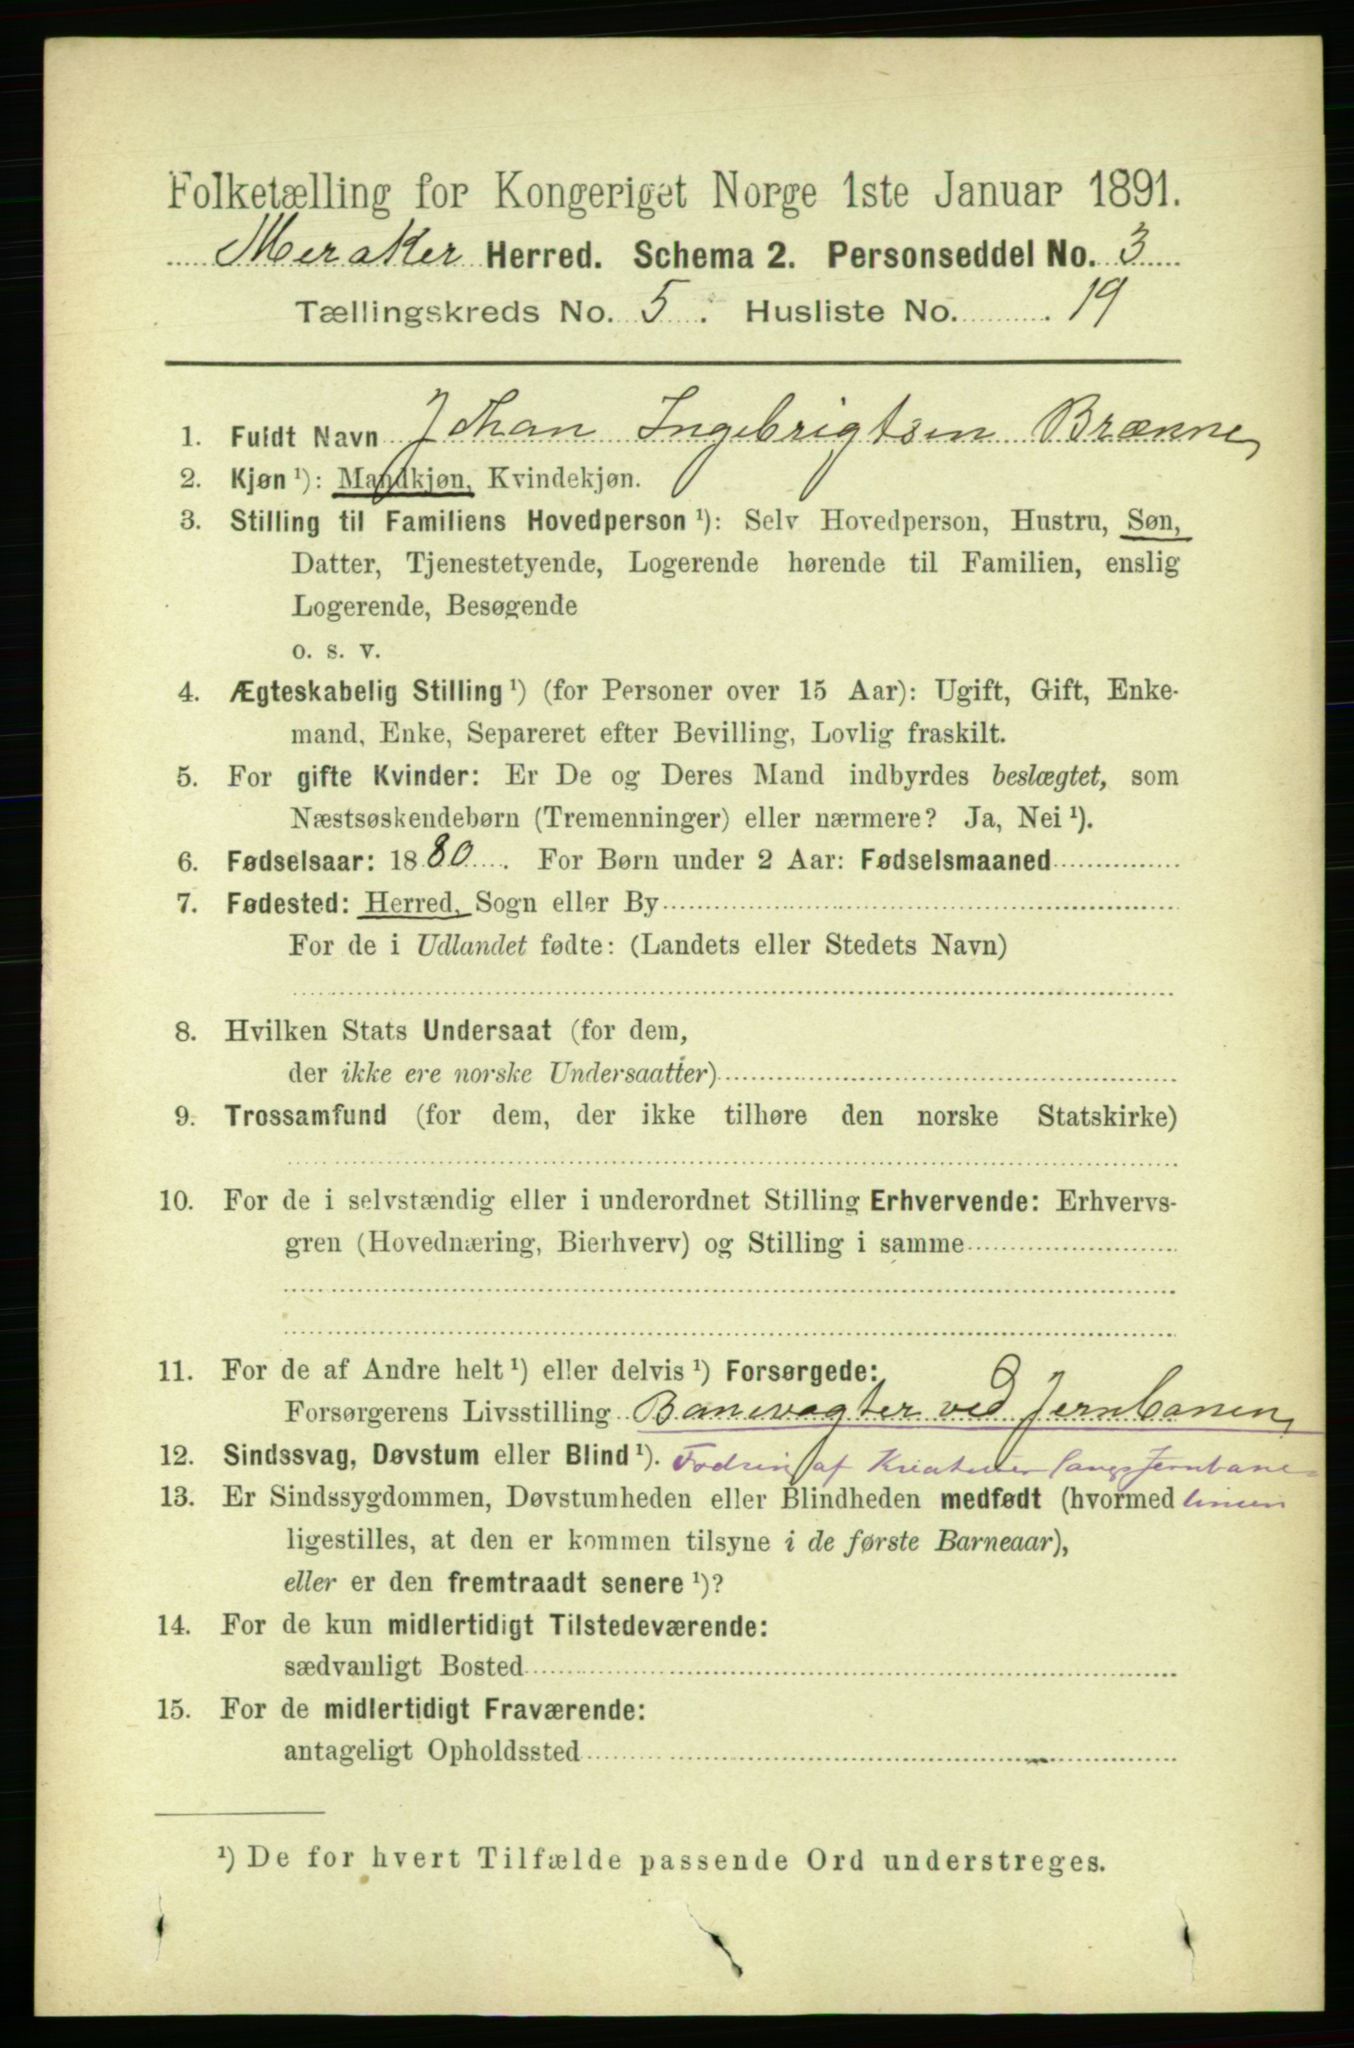 Folketælling for Kongeriget Norge 1ste Januar 1891.
Meraker Herred. Schema 2. Personseddel No. 3
Tællingskreds No. 5. Husliste No. 19
1. Fuldt Navn Johan Ingebrigtsen Brænne,
2. Kjøn ¹): Mandkjøn, Kvindekjøn.
3. Stilling til Familiens Hovedperson ¹): Selv Hovedperson, Hustru, Søn,
Datter, Tjenestetyende, Logerende hørende til Familien, enslig
Logerende, Besøgende
o. s. v.
4. Ægteskabelig Stilling ¹) (for Personer over 15 Aar): Ugift, Gift, Enke-
mand, Enke, Separeret efter Bevilling, Lovlig fraskilt.
5. For gifte Kvinder: Er De og Deres Mand indbyrdes beslægtet, som
Næstsøskendebørn (Tremenninger) eller nærmere? Ja, Nei ¹).
6. Fødselsaar: 1880. For Børn under 2 Aar: Fødselsmaaned
7. Fødested: Herred, Sogn eller By
For de i Udlandet fødte: (Landets eller Stedets Navn)
8. Hvilken Stats Undersaat (for dem,
der ikke ere norske Undersaatter)
9. Trossamfund (for dem, der ikke tilhøre den norske Statskirke)
10. For de i selvstændig eller i underordnet Stilling Erhvervende: Erhvervs-
gren (Hovednæring, Bierhverv) og Stilling i samme
11. For de af Andre helt ¹) eller delvis ¹) Forsørgede:
Forsørgerens Livsstilling Banevagter ved Jernbanen,
12. Sindssvag, Døvstum eller Blind ¹). af langs Jernbane-
13. Er Sindssygdommen, Døvstumheden eller Blindheden medfødt (hvormed linien
ligestilles, at den er kommen tilsyne i de første Barneaar),
eller er den fremtraadt senere ¹)?
14. For de kun midlertidigt Tilstedeværende:
sædvanligt Bosted
15. For de midlertidigt Fraværende:
antageligt Opholdssted
¹) De for hvert Tilfælde passende Ord understreges.